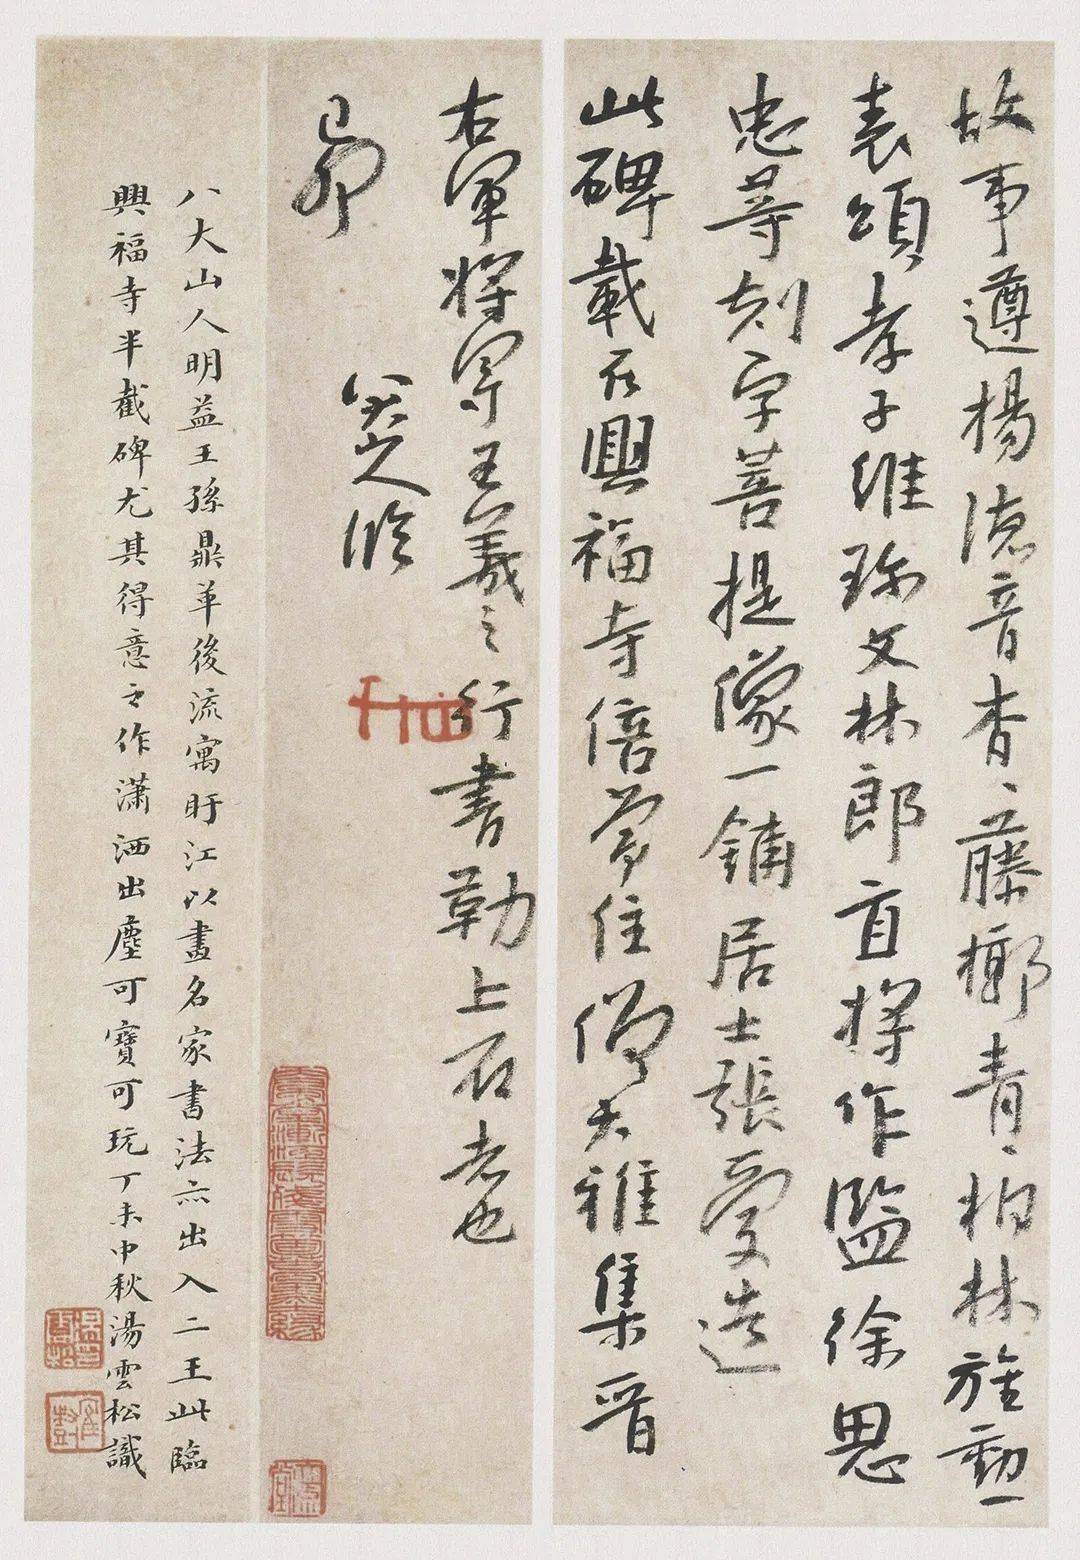 故事遵楊德音杳〻藤槨青〻柏林旌勳一
表頌孝子維珎文林郎直将作監徐思
忠等刻字菩提像一鋪居士張愛造
此碑載在興福寺倍常住僧大雅集晉
右軍将軍王羲之行書勒上石者也
己卯
八大山人臨
八大山人明益王孫鼎革後流寓盱江以畫名家書法亦出入二王此臨
興福寺半截碑尤其得意之作瀟洒出塵可寶可玩丁未中秋湯雲松識